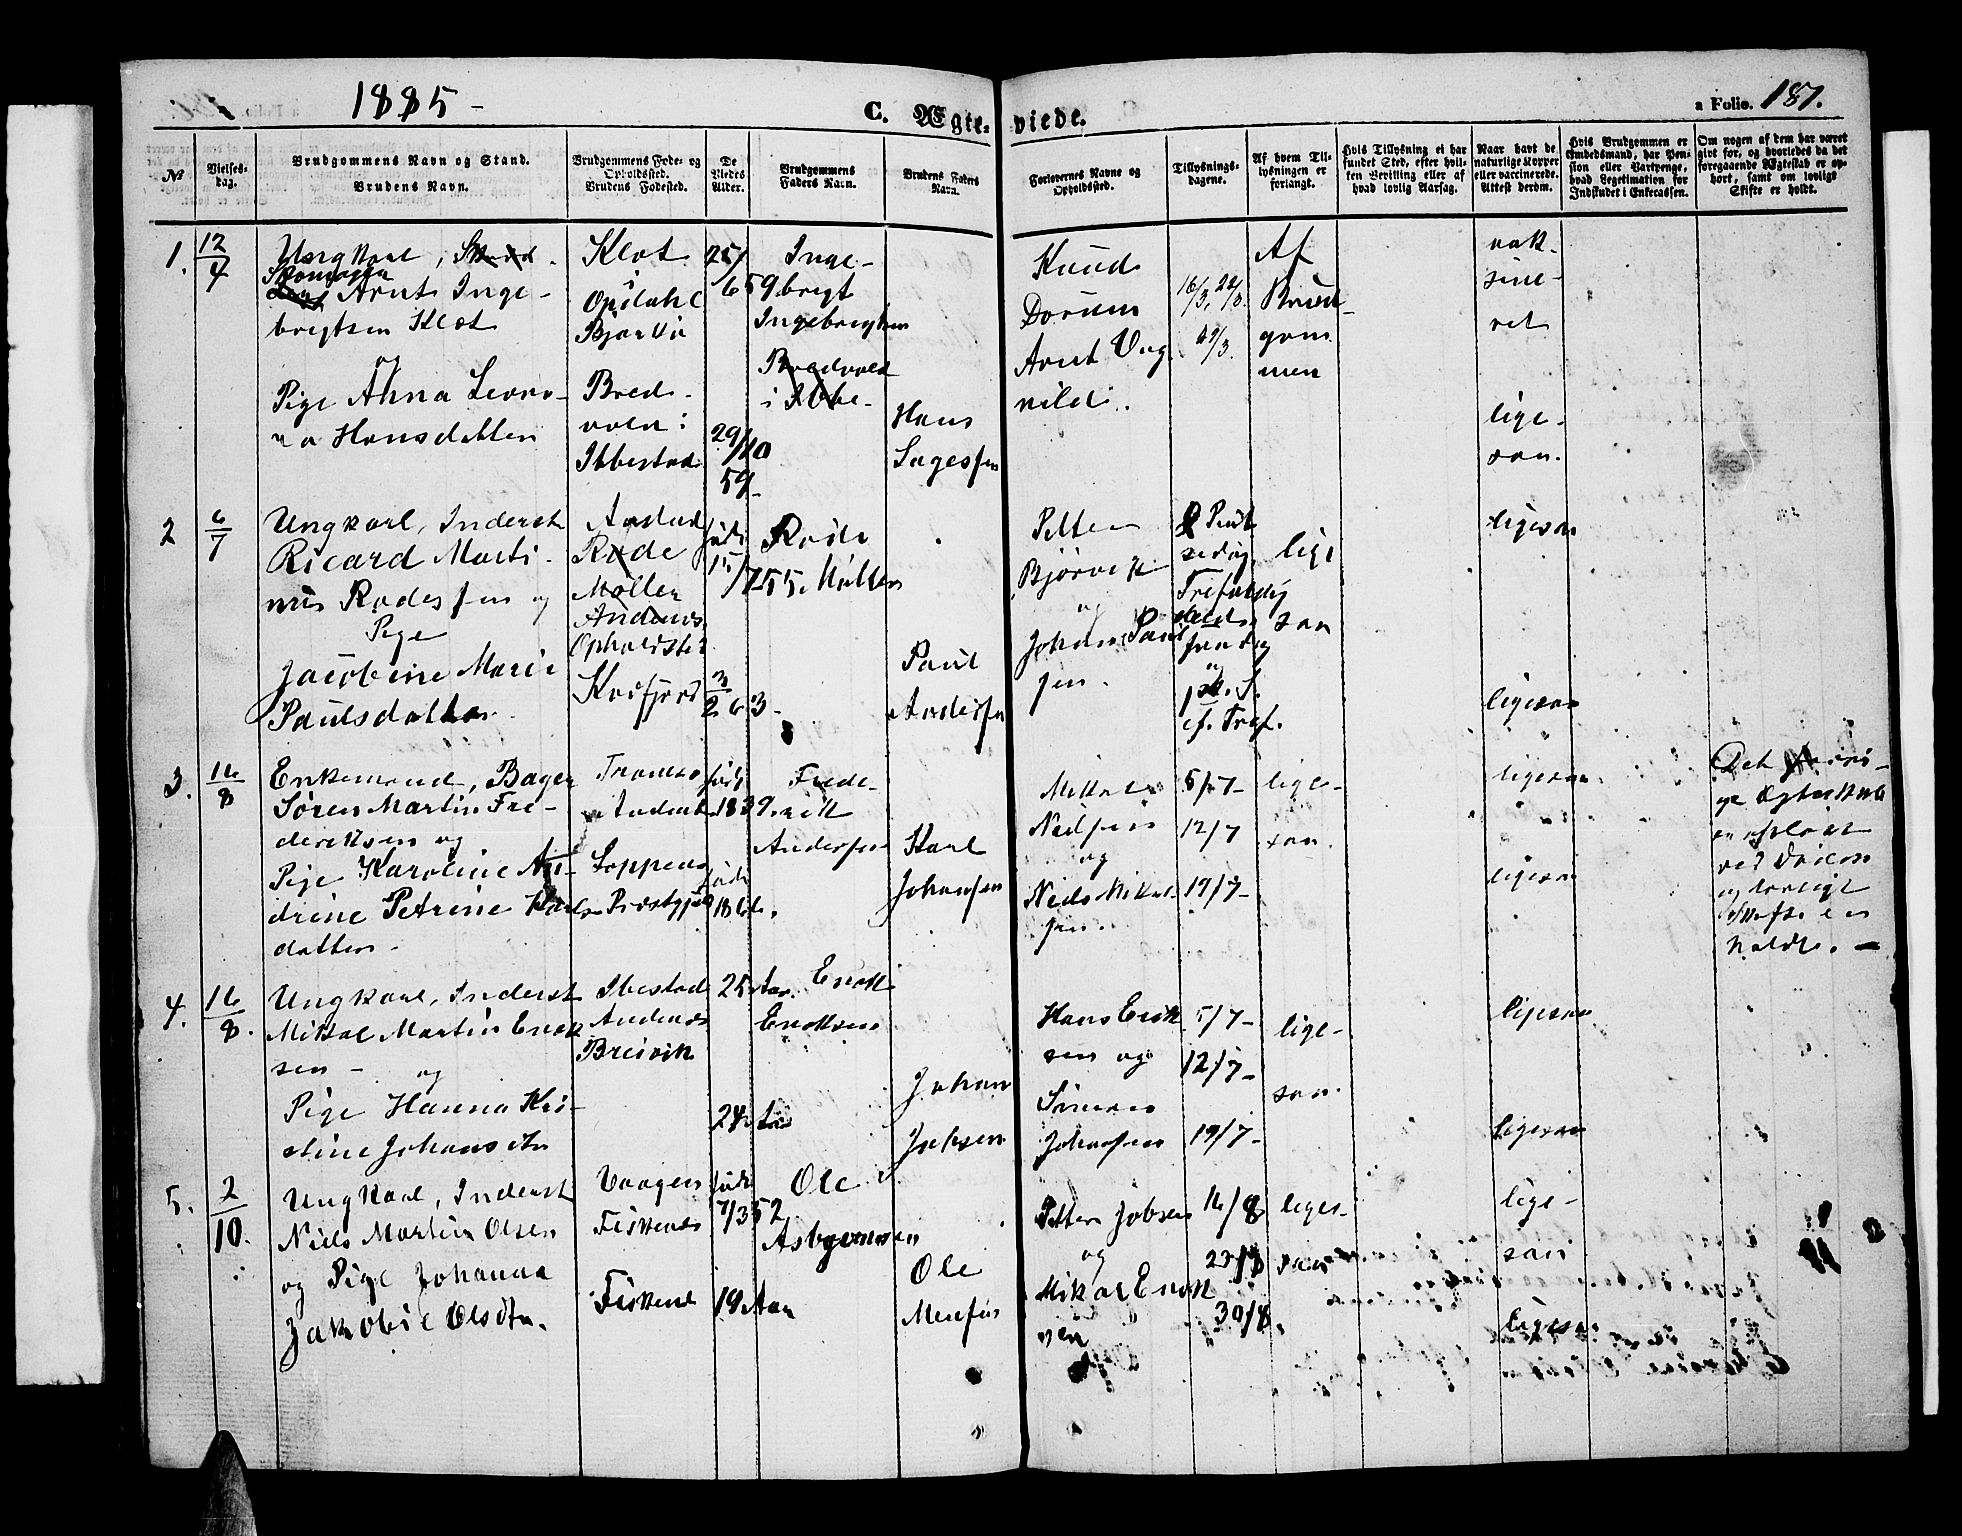 1885 -
C. Ægte- viede.
a Folio. 187.
No
Vielses-
dag.
Brudgommens Navn og Stand.
Brudens Navn.
Brudgommens Føde- og
Opholdssted.
Brudens Fødested.
De
Viedes
Alder.
Brudgommens
Faders Navn.
Brudens Faders
Navn.
Forlovernes Navne og
Opholdssted.
Tillysnings-
dagene.
Af hvem Til-
lysningen er
forlangt.
Hvis Tillysning ei har
fundet Sted, efter hvil-
ken Bevilling eller af
hvad lovlig Aarsag.
Naar havt de
naturlige Kopper
eller vaccinerede.
Attest derom.
Hvis Brudgommen er
Embedsmand, har Pen-
sion eller Vartpenge,
hvad Legitimation for
Indskudet i Enkecassen.
Om nogen af dem har været
gift før, og hvorledes da det
foregaaende Ægteskab er op-
hørt, samt om lovligt
Skifte er holdt.
1.
12/4
Ungkarl,
Skomager
Arnt Inge-
brigtsen Kløt
og
Pige Anna Leono-
ra Hansdatter
Kløt
i
Opdahl
Bjarkø
Bred-
vold i
Ibbestad
25/
6 59
29/10
59
Inge-
brigt
Ingebrigtsen
Bredvold
i Ibbe-
Hans
Knud
Dorum
Arnt Ung
16/3, 22/3
29/3.
Af
Brud-
gom-
men
vak-
sine-
ret
lige-
saa.
2
6/7
Ungkarl, Inderst
Ricard Marti-
nus Rodesen og
Pige
Jacobine Marie
Paulsdatter.
Rode
Møller
Andenes
Opholdsted
Kvæfjord
født
15/7 55.
3/2 63-
Rode
Møller
Paul
Andersen
Petter
Bjørvik
og
Johan Paul
sen.
2 Pint
sedag
Trefoldig
heds
søndag
og
1ste S.
ef. Tref.
lige
saa
ligesaa
ligesaa
3.
16/8
Enkemand, Bager
Søren Martin Fre-
deriksen og
Pige Karoline An-
drine Petrine Karls-
datter -
Tromsø
Andenes
Loppens
Præstgjeld
født
1839.
født
186
Frede-
rik
Andersen
Karl
Johansen
Mikal
Nielsen
og
Niels Mikal-
sen.
5/7-
12/7
19/7-
lige-
saa.
ligesaa
ligesaa
Det forri-
ge Ægteskab
er opløst
ved Døden
og lovligt
Skifte er
holdt. -
4.
16/8.
Ungkarl, Inderst
Mikal Martin Enok
sen - og
Pige Hanna Kri-
stine Johansdtr
Ibestad
Andenes
Breivik
25 Aar.
24 Aar
Enok
Enoksen
Johan
Jaksen
Hans Erik
sen og
Simon
Johansen
5/7-
12/7-
19/7-
lige-
saa.
ligesaa
ligesaa
5.
2/10.
Ungkarl, Inderst
Niels Martin Olsen
og Pige Johanna
Jakobie Olsdtr.
Vaagen
Fiskenes
Fiskenes
født
7/3 52
19 Aar
Ole
Asbjørnsen
Ole
Petter Jobsen
og
Mikal Enok
sen
16/8
23/8
30/8.
liges-
saa
lige-
saa
ligesaa